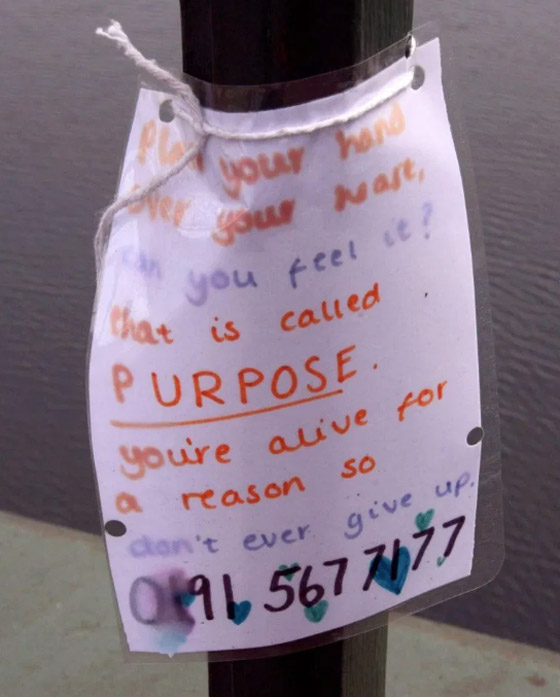 Place your hand
over your heart,
can you feel it?
that is called
PURPOSE.
you're alive for
a reason so
don't ever give up.
0191 567 7177